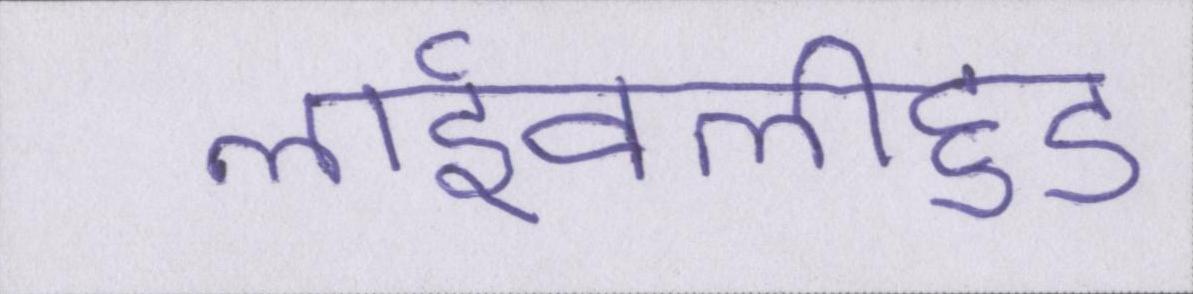 लाईवलीहुड